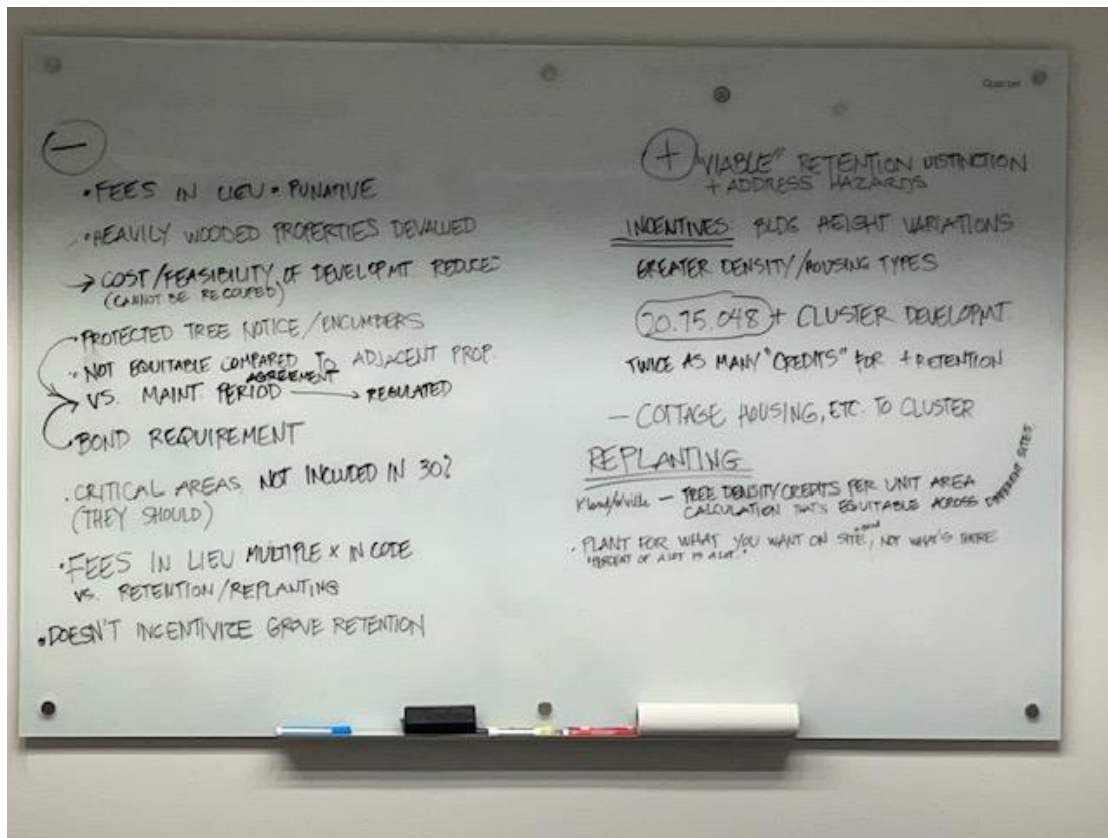 —
• FEES IN LIEU • PUNATIVE
• HEAVILY WOODED PROPERTIES DEVALUED
→ COST/FEASIBILITY OF DEVELOPMT REDUCES
(CANNOT BE RECOUPED)
• PROTECTED TREE NOTICE/ENCUMBERS
• NOT EQUITABLE COMPARED TO ADJACENT PROP.
AGREEMENT
VS. MAINT. PERIOD → REGULATED
BOND REQUIREMENT
• CRITICAL AREAS NOT INCLUDED IN 30%
(THEY SHOULD)
• FEES IN LIEU MULTIPLE X IN CODE
VS. RETENTION/REPLANTING
• DOESN'T INCENTIVIZE GROVE RETENTION
Quartet
+ "VIABLE" RETENTION DISTINCTION
+ ADDRESS HAZARDS
INCENTIVES: BLDG HEIGHT VARIATIONS
GREATER DENSITY/HOUSING TYPES
20.75.048 + CLUSTER DEVELOPMT.
TWICE AS MANY "CREDITS" FOR + RETENTION
— COTTAGE HOUSING, ETC. TO CLUSTER
REPLANTING
Kland/W'ville — TREE DENSITY CREDITS PER UNIT AREA
CALCULATION THAT'S EQUITABLE ACROSS DIFFERENT SITES.
• PLANT FOR WHAT YOU WANT ON SITE, NOT WHAT'S THERE
"PERCENT OF A LOT IS A LOT."